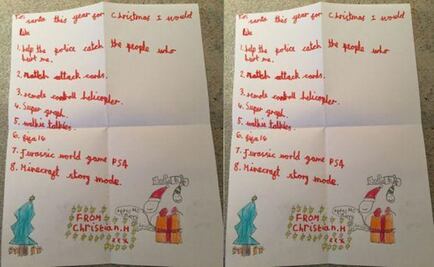 santa this year for Christmas I would
like
1. help the police catch the people who
hurt me.
2. Match attack cards.
3. remote controll helicopter.
4. Super graph.
5. walkie talkies.
6. fifa 16
7. Jerassic world game PS4
8. Minecraft story mode.
FROM
Christian.H
xxx
santa this year for Christmas I would
like
1. help the police catch the people who
hurt me.
2. Match attack cards.
3. remote controll helicopter.
4. Super graph.
5. walkie talkies.
6. fifa 16
7. Jerassic world game PS4
8. Minecraft story mode.
FROM
Christian.H
xxx